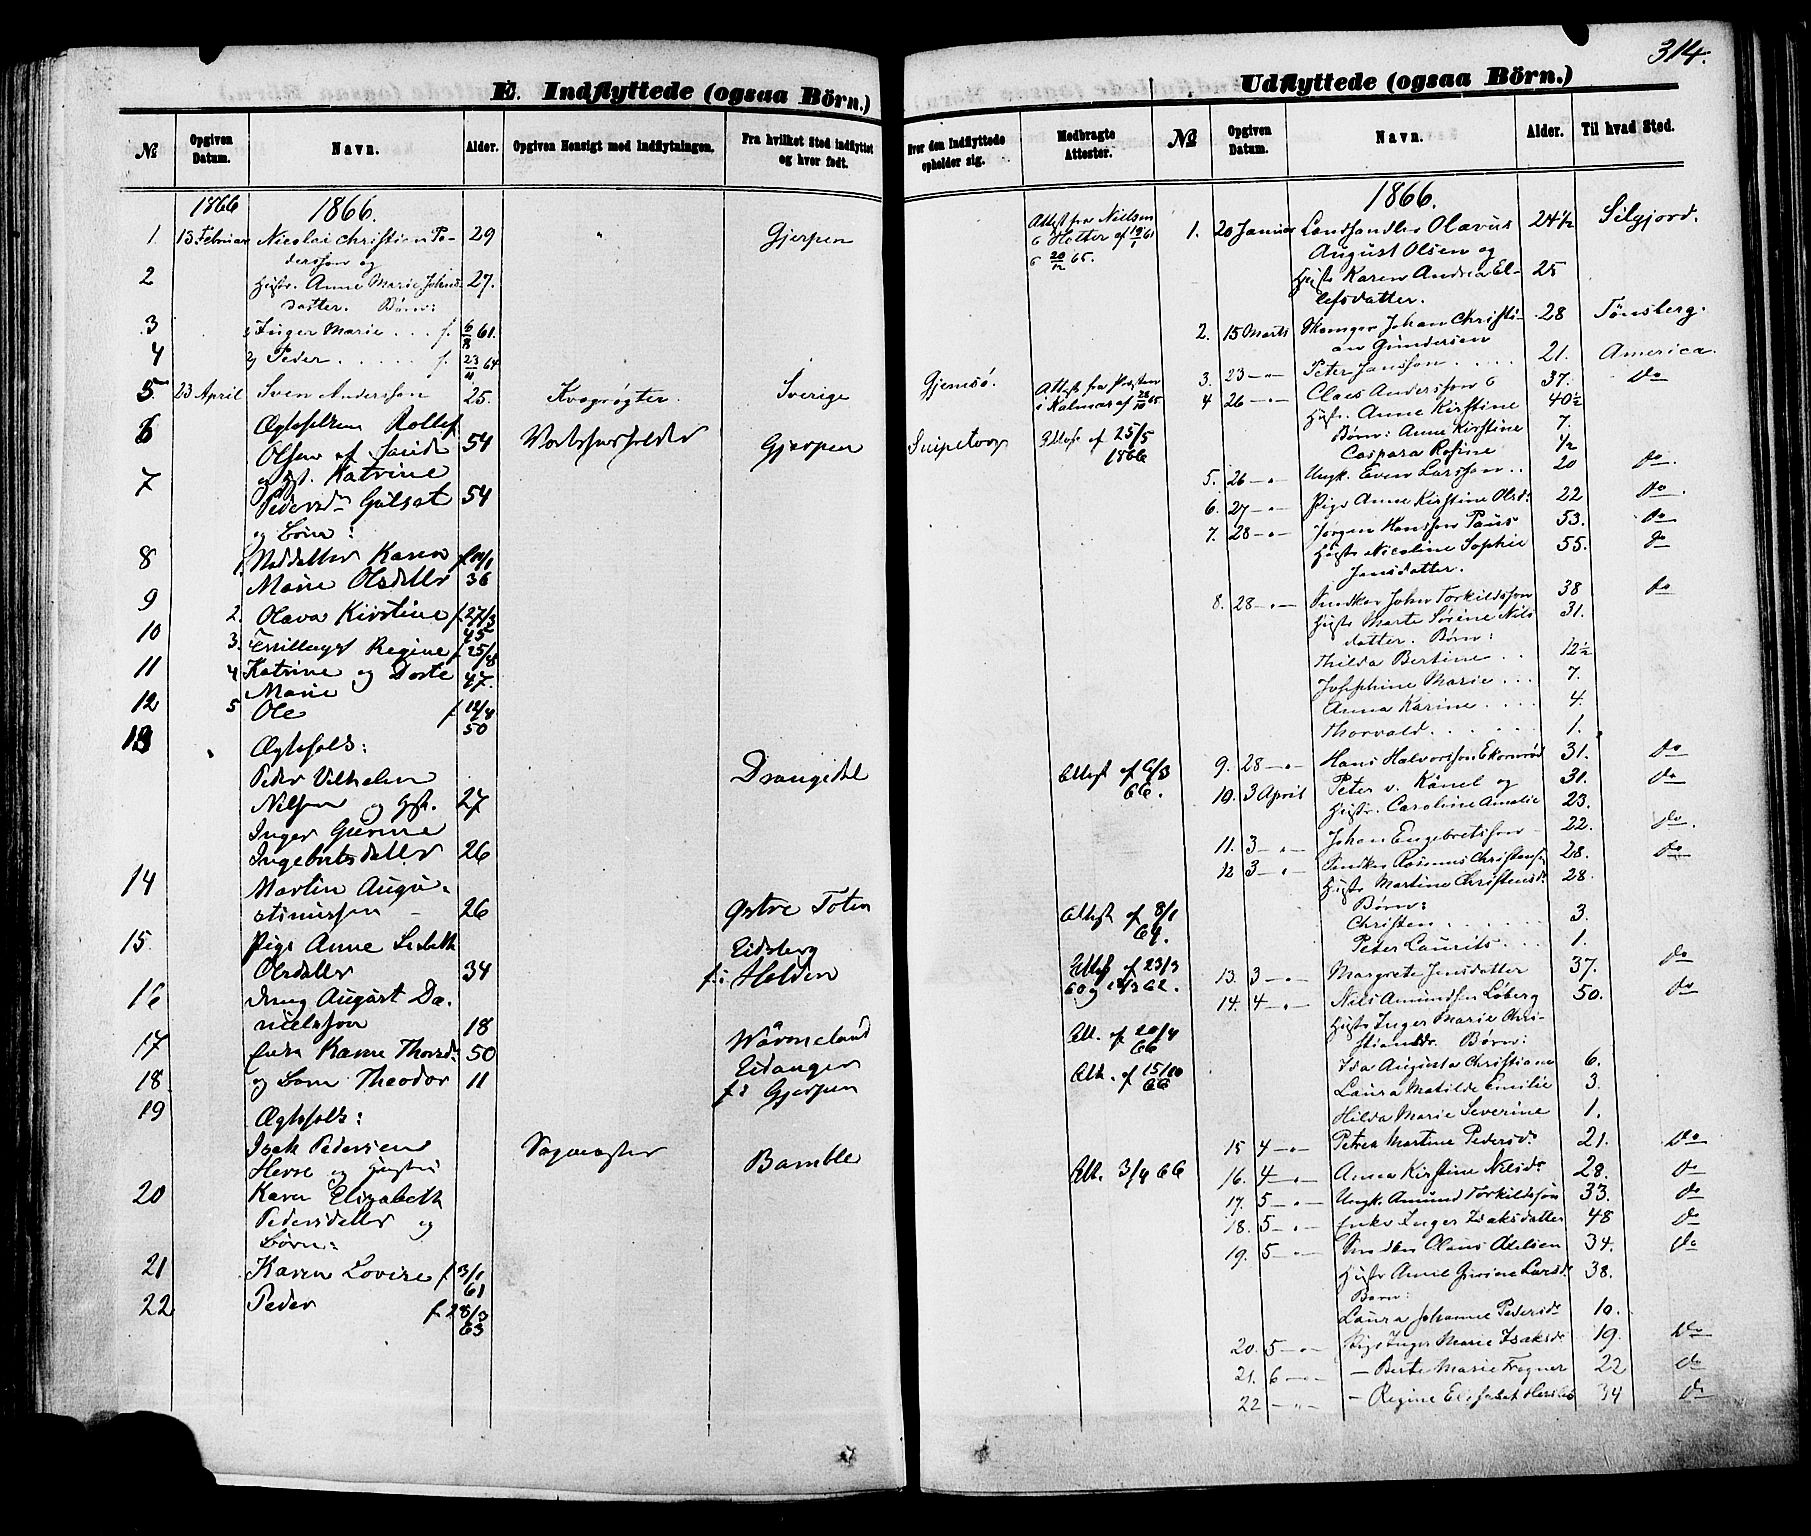 314.
E. Indflyttede (ogsaa Börn.)
№
Opgiven Datum.
Navn.
Alder.
Opgiven Hensigt med Indflytningen.
Fra hvilket Sted indflyttet og hvor født.
Hvor den Indflyttede opholder sig.
Medbragte Attester.
1866 1866.
1. 13 Februar Nicolai Christian Pe- 29 " Gjerpen Attest fra Nielsen
derssen og
2 Hustr. Anne Marie Johns- 27.
datter. Børn:
3 1 Inger Marie . . . f. 6/8 61.
4 2 Peder . . . . . f. 23/11 64
5 23 April Sven Anderssøn 25. Kvægrøgter Sverige Gjemsö. Attest fra Præsten
i Kalmar af 28/10 65
6 Ægtefolkene Rollef
Olsen af Sunde 54 Gjerpen Snipetorp Attest af 25/5
1866
7 og Hst. Katrine
Pedersdr 54
og Börn:
8 1. Karen f 11/1
Marie Olsdatter 36
9 2. Olava Kirstine f 27/3
45
10 3. Regine f 25/8
11 4 Katrine og Dorte 47.
Marie
12 5 Ole f 12/4
50
13 Ægtefolk:
Peder Vilhelm Drangedal Attest af 6/3
66.
Nilsen og Hst. 27
Inger Gurine
Ingebretsdatter 26
14 Martin Augu-
stinussen - 26 Østre Toten Attest af 8/1
64.
15. Pige Anne Lisbeth Eidsberg
Olsdatter 34 f: i Holden Attest af 23/3
16 Ung August Da-
nielsson 18 Wärmeland Att. af 20/4
66
17 Enke Karen Thorsdr 50 Eidanger
18 og Sön Theodor 11 f. i Gjerpen Att. af 15/10
66
19 Ægtefolk:
Isak Pedersen Sagmester Bamble Att. 3/9 66
Herre og Hustru
20 Karen Elizabeth
Pedersdatter og
Börn:
21 Karen Lovise f 3/1
61
22 Peder f 28/3
63
Udflyttede (ogsaa Börn.)
№
Opgiven Datum.
Navn.
Alder.
Til hvad Sted.
1866.
1. 20 Januar Landhandler Olavus 24½ Silgjord.
August Olsen og
Hustr. Karen Andrea El- 25
lefsdatter.
2. 15 Marts Johan Christi- 28 Tønsberg.
an Gundersen
3. 23 — " — Peter Jansson . . . . 21. America.
4 26 — " — Claes Andersson 37. do
Hustr. Anne Kirstine 40½
Børn: Anne Kirstine 7.
Caspara Rosine ½
5. 26 — " — Ungk. Even Larssen . . 20 do
6. 27 — " — Pige Anne Kirstine Olsdr 22 do
7. 28 — " — Jørgen Hanssen Paus 53. do
Hustr. Nicoline Sophie 55. do
Jensdatter.
8. 28 — " — Snedker John Torkildssen 38 do
Hustr. Marte Sørine Nils- 31.
datter. Børn:
Thilda Bertine . . 12½
Josephine Marie . . . 7.
Anna Karine . . . . 4.
Thorvald . . . . . . 1.
9. 28 — " — Hans Halvorssen Ekornrød 31. do
10. 3 April Peter v. Känel og 31. do
Hustr. Caroline Amalie 23.
11. 3 — " — Johan Engebretssen — 22. do
12 3 — " — Snedker Rasmus Christensen 28. do
Hustr. Martine Christensdr 28.
Børn:
Christen . . . . . . 3.
Peter Laurits . . . 1.
13. 3 — " — Margrete Jensdatter 37. do
14. 4 — " — Niels Amundsen Løberg 50. do
Hustr. Inger Marie Chri-
stiansdr. Børn:
Ida Augusta Christiane 6.
Laura Matilde Emilie 3.
Hilda Marie Severine 1.
15 4 — " — Petrea Martine Pedersdr 21. do
16. 4 — " — Anna Kirstine Nilsdr 28. do
17. 5 — " — Ungk. Amund Torkildssøn 33. do
18. 5 — " — Enke Inger Isaksdatter 48 do
19. 5 — " — Smed Claus Olelsen 34. do
Hustr Anne Gurine Larsdr 38.
Børn:
Laura Johanne Pedersdr 10.
20. 5 — " — Pige Inger Marie Isaksdr 19. do
21. 6 — " — — Berte Marie Fragner 22 do
22 — " — — Regine Elisabet 34 do